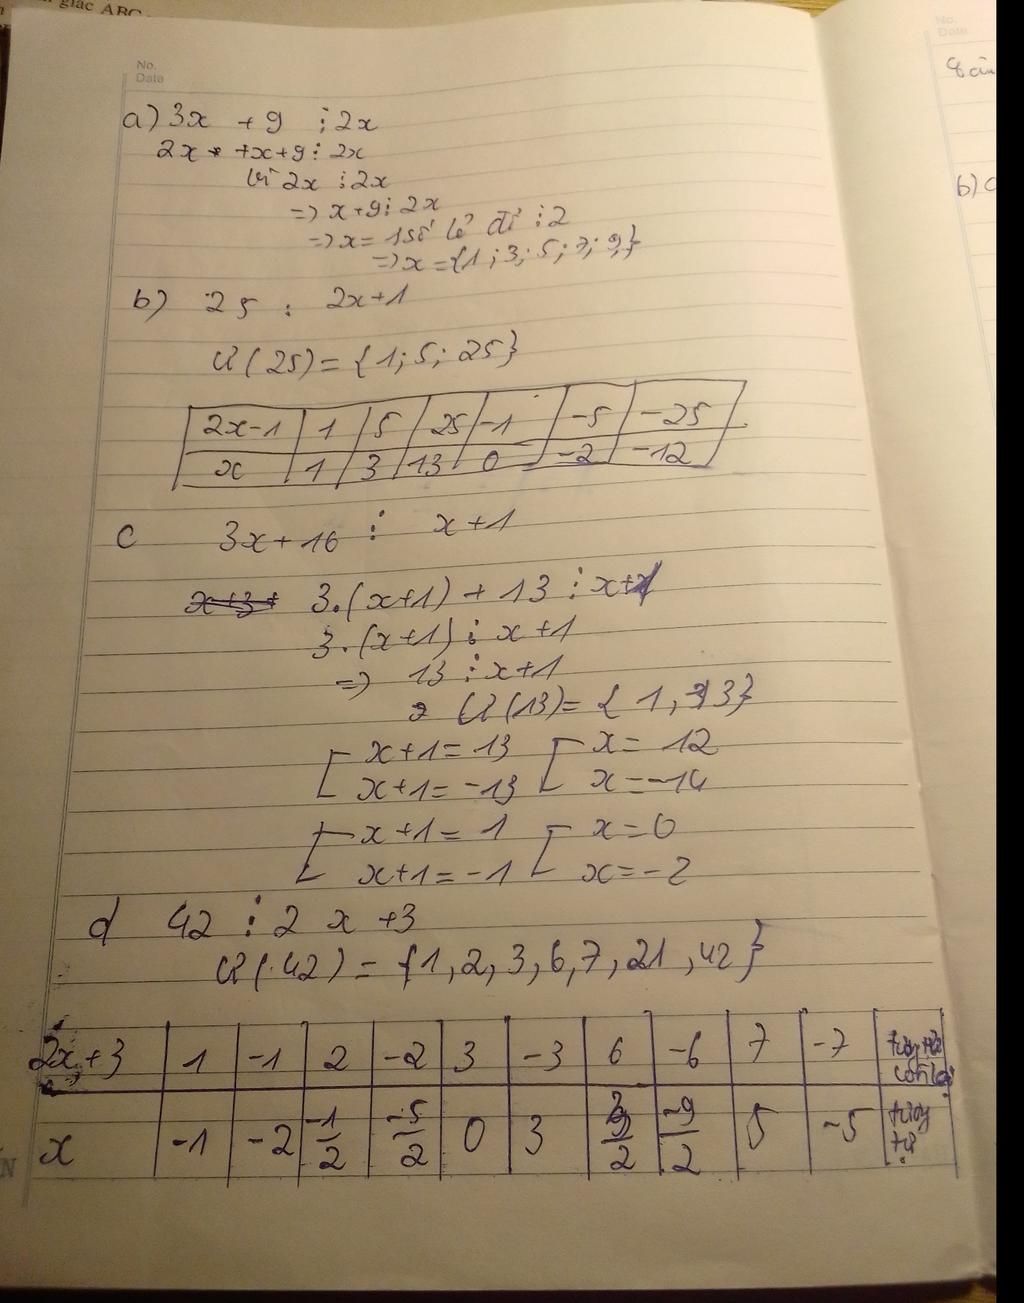 giác ABC
No.
Date
a) 3x + 9 ⋮ 2x
2x + x + 9 ⋮ 2x
Vì 2x ⋮ 2x
=> x + 9 ⋮ 2x
=> x = 1 số lẻ để ⋮ 2
=> x = {1 ; 3 ; 5 ; 7 ; 9}
b) 25 : 2x+1
Ư(25) = {1; 5; 25}
2x-1 | 1 | 5 | 25 | -1 | -5 | -25
x | 1 | 3 | 13 | 0 | -2 | -12
c 3x + 16 ⋮ x + 1
3.(x+1) + 13 ⋮ x+1
3.(x+1) ⋮ x+1
=> 13 ⋮ x+1
Ư(13) = {1, 13}
[ x+1 = 13 [ x = 12
x+1 = -13 x = -14
[ x+1 = 1 [ x = 0
x+1 = -1 x = -2
d 42 ⋮ 2x + 3
Ư(42) = {1, 2, 3, 6, 7, 21, 42}
2x+3 | 1 | -1 | 2 | -2 | 3 | -3 | 6 | -6 | 7 | -7 | tương tự
x | -1 | -2 | -1/2 | -5/2 | 0 | 3 | 3/2 | -9/2 | 5 | -5 | tương tự
No.
Date
b)